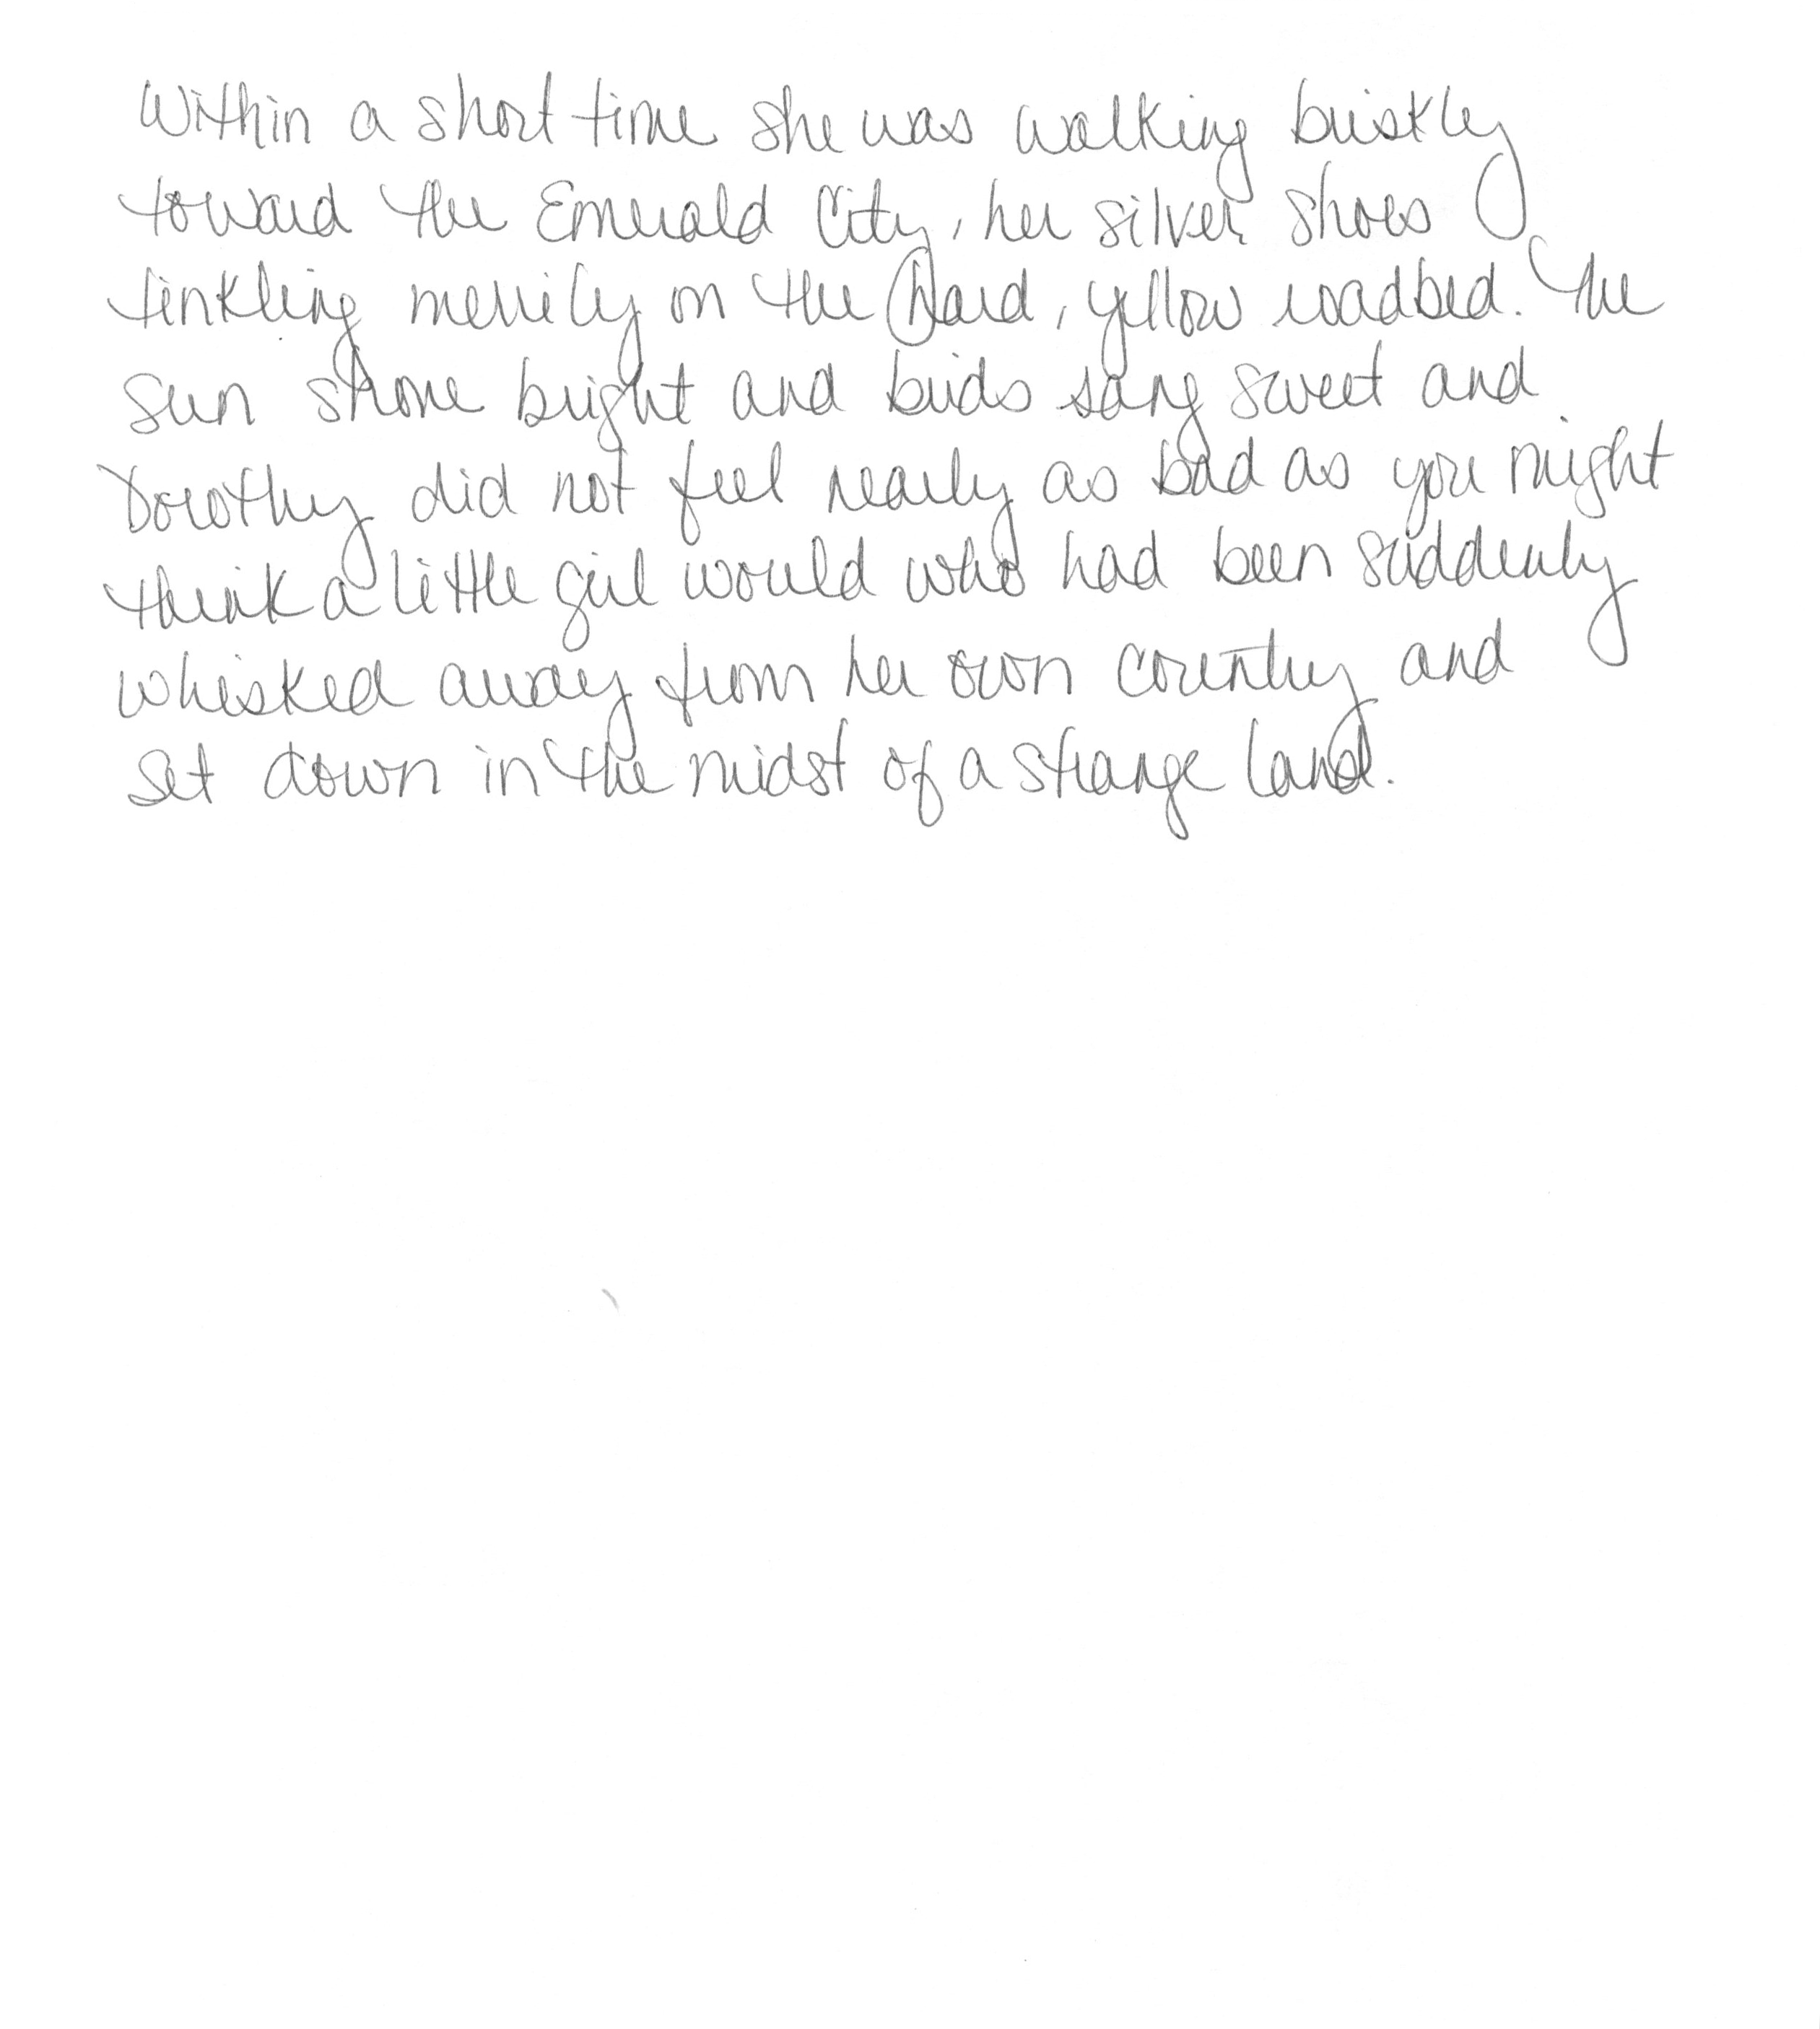 Within a short time she was walking briskly
toward the Emerald City, her silver shoes
tinkling merrily on the hard, yellow roadbed. The
sun shone bright and birds sang sweet and
Dorothy did not feel nearly as bad as you might
think a little girl would who had been suddenly
whisked away from her own country and
set down in the midst of a strange land.